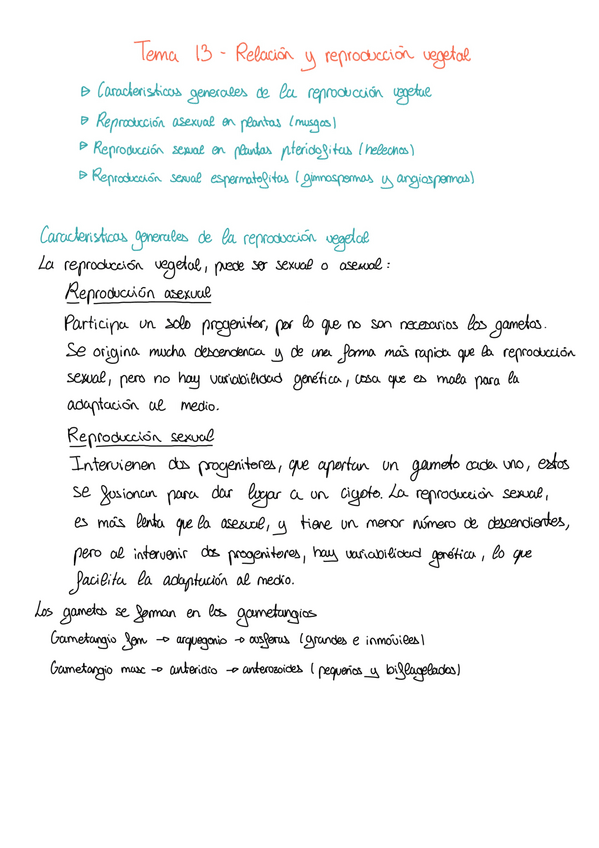 Tema 13 - Relación y reproducción vegetal
▷ Caracteristicas generales de la reproducción vegetal
▷ Reproducción asexual en plantas (musgos)
▷ Reproducción sexual en plantas pteridofitas (helechos)
▷ Reproducción sexual espermatofitas (gimnospermas y angiospermas)
Caracteristicas generales de la reproducción vegetal
La reproducción vegetal, puede ser sexual o asexual:
Reproducción asexual
Participa un solo progenitor, por lo que no son necesarios los gametos.
Se origina mucha descendencia y de una forma más rapida que la reproducción
sexual, pero no hay variabilidad genética, cosa que es mala para la
adaptación al medio.
Reproducción sexual
Intervienen dos progenitores, que aportan un gameto cada uno, estos
se fusionan para dar lugar a un cigoto. La reproducción sexual,
es más lenta que la asexual, y tiene un menor número de descendientes,
pero al intervenir dos progenitores, hay variabilidad genética, lo que
facilita la adaptación al medio.
Los gametos se forman en los gametangios
Gametangio fem → arquegonio → oosferas (grandes e inmóviles)
Gametangio masc → anteridio → anterozoides (pequeños y biflagelados)